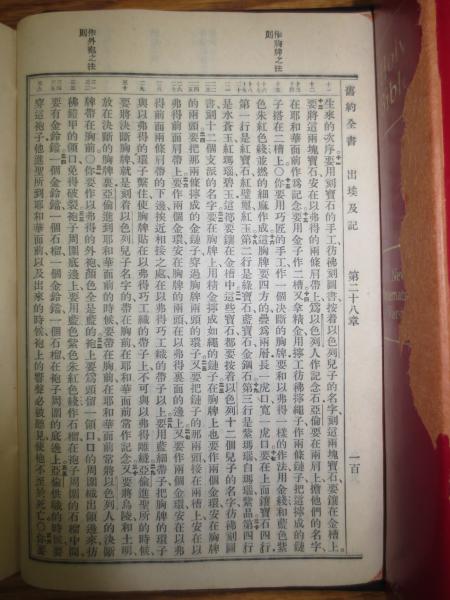 舊約全書 出埃及記 第二十八章 一百
作胸牌之法則
作外袍之法則
生來的次序要用刻寶石的手工彷彿刻圖書按着以色列兒子的名字刻這兩塊寶石要鑲在金槽上
要將這兩塊寶石安在以弗得的兩條肩帶上爲以色列人作記念石亞倫要在兩肩上擔他們的名字
在耶和華面前作爲記念要用金子作二槽又拏精金用擰工彷彿擰繩子作兩條鏈子把這擰成的鏈
子搭在二槽上○你要用巧匠的手工作一個決斷的胸牌要和以弗得一樣的作法用金綫和藍色紫
色朱紅色綫並撚的細麻作成這胸牌要四方的疊爲兩層長一虎口寬一虎口要在上面鑲寶石四行
第一行是紅寶石紅璧璽紅玉第二行是綠寶石藍寶石金鋼石第三行是紫瑪瑙白瑪瑙紫晶第四行
是水蒼玉紅瑪瑙碧玉這都要鑲在金槽中這些寶石都要按着以色列十二個兒子的名字彷彿刻圖
書刻十二個支派的名字要在胸牌上用精金擰成如繩的鏈子在胸牌上也要作兩個金環安在胸牌
的兩頭要把那兩條擰成的金鏈子穿過胸牌兩頭的環子又要把鏈子的那兩頭接在兩槽上安在以
弗得前面肩帶上要作兩個金環安在胸牌的兩頭在以弗得裏面的邊上又要作兩個金環安在以弗
得前面兩條肩帶的下邊挨近相接之處在以弗得巧工織的帶子以上要用藍細帶子把胸牌的環子
與以弗得的環子繫住使胸牌貼在以弗得巧工織的帶子上不可與以弗得離縫亞倫進聖所的時候
要將決斷胸牌就是刻着以色列兒子名字的帶在胸前在耶和華面前常作記念又要將烏陵和土明
放在決斷的胸牌裏亞倫進到耶和華面前的時候要帶在胸前在耶和華面前常將以色列人的決斷
牌帶在胸前○你要作以弗得的外袍顏色全是藍的袍上要爲頭留一領口口的周圍織出領邊來彷
彿鎧甲的領口免得破裂袍子周圍底邊上要用藍色紫色朱紅色綫作石榴在袍子周圍的石榴中間
要有金鈴鐺一個金鈴鐺一個石榴一個金鈴鐺一個石榴在袍子周圍的底邊上亞倫供職的時候要
穿這袍子他進聖所到耶和華面前以及出來的時候袍上的響聲必被聽見使他不至於死亡○你要